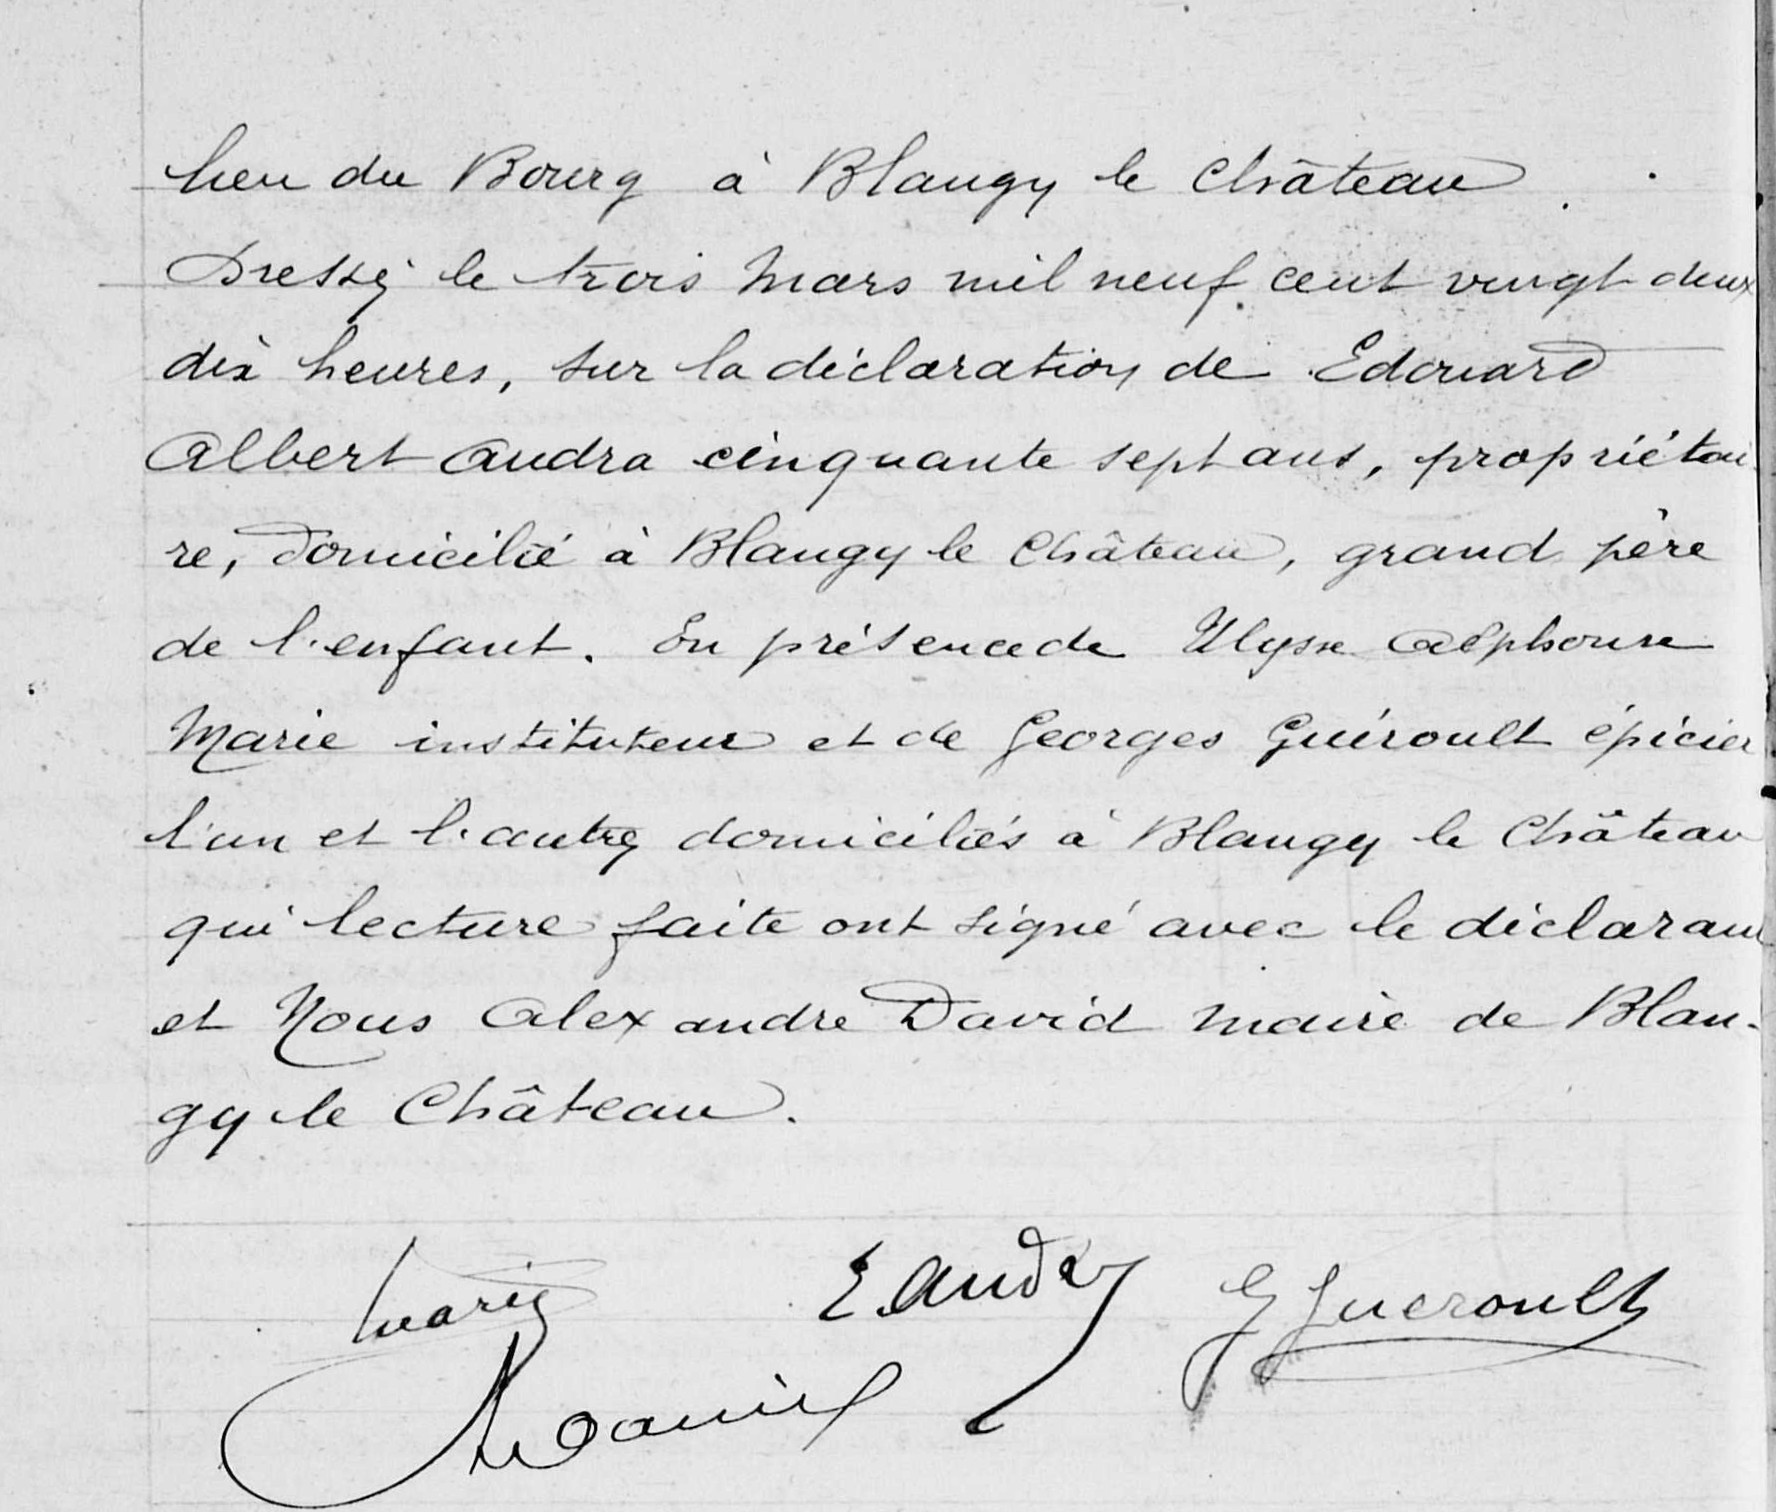 lieu du Bourg à Blangy le Château.
Dressé le trois Mars mil neuf cent vingt deux
dix heures, sur la déclaration de Edouard
Albert Audra cinquante sept ans, propriétai
re, domicilié à Blangy le Château, grand père
de l'enfant. En présence de Ulysse Alphonse
Marie instituteur et de Georges Guéroult épicier
l'un et l'autre domiciliés à Blangy le Château
qui lecture faite ont signé avec le déclarant
et Nous Alexandre David maire de Blan-
gy le Château.
Marie E. Audra G Gueroult
A David